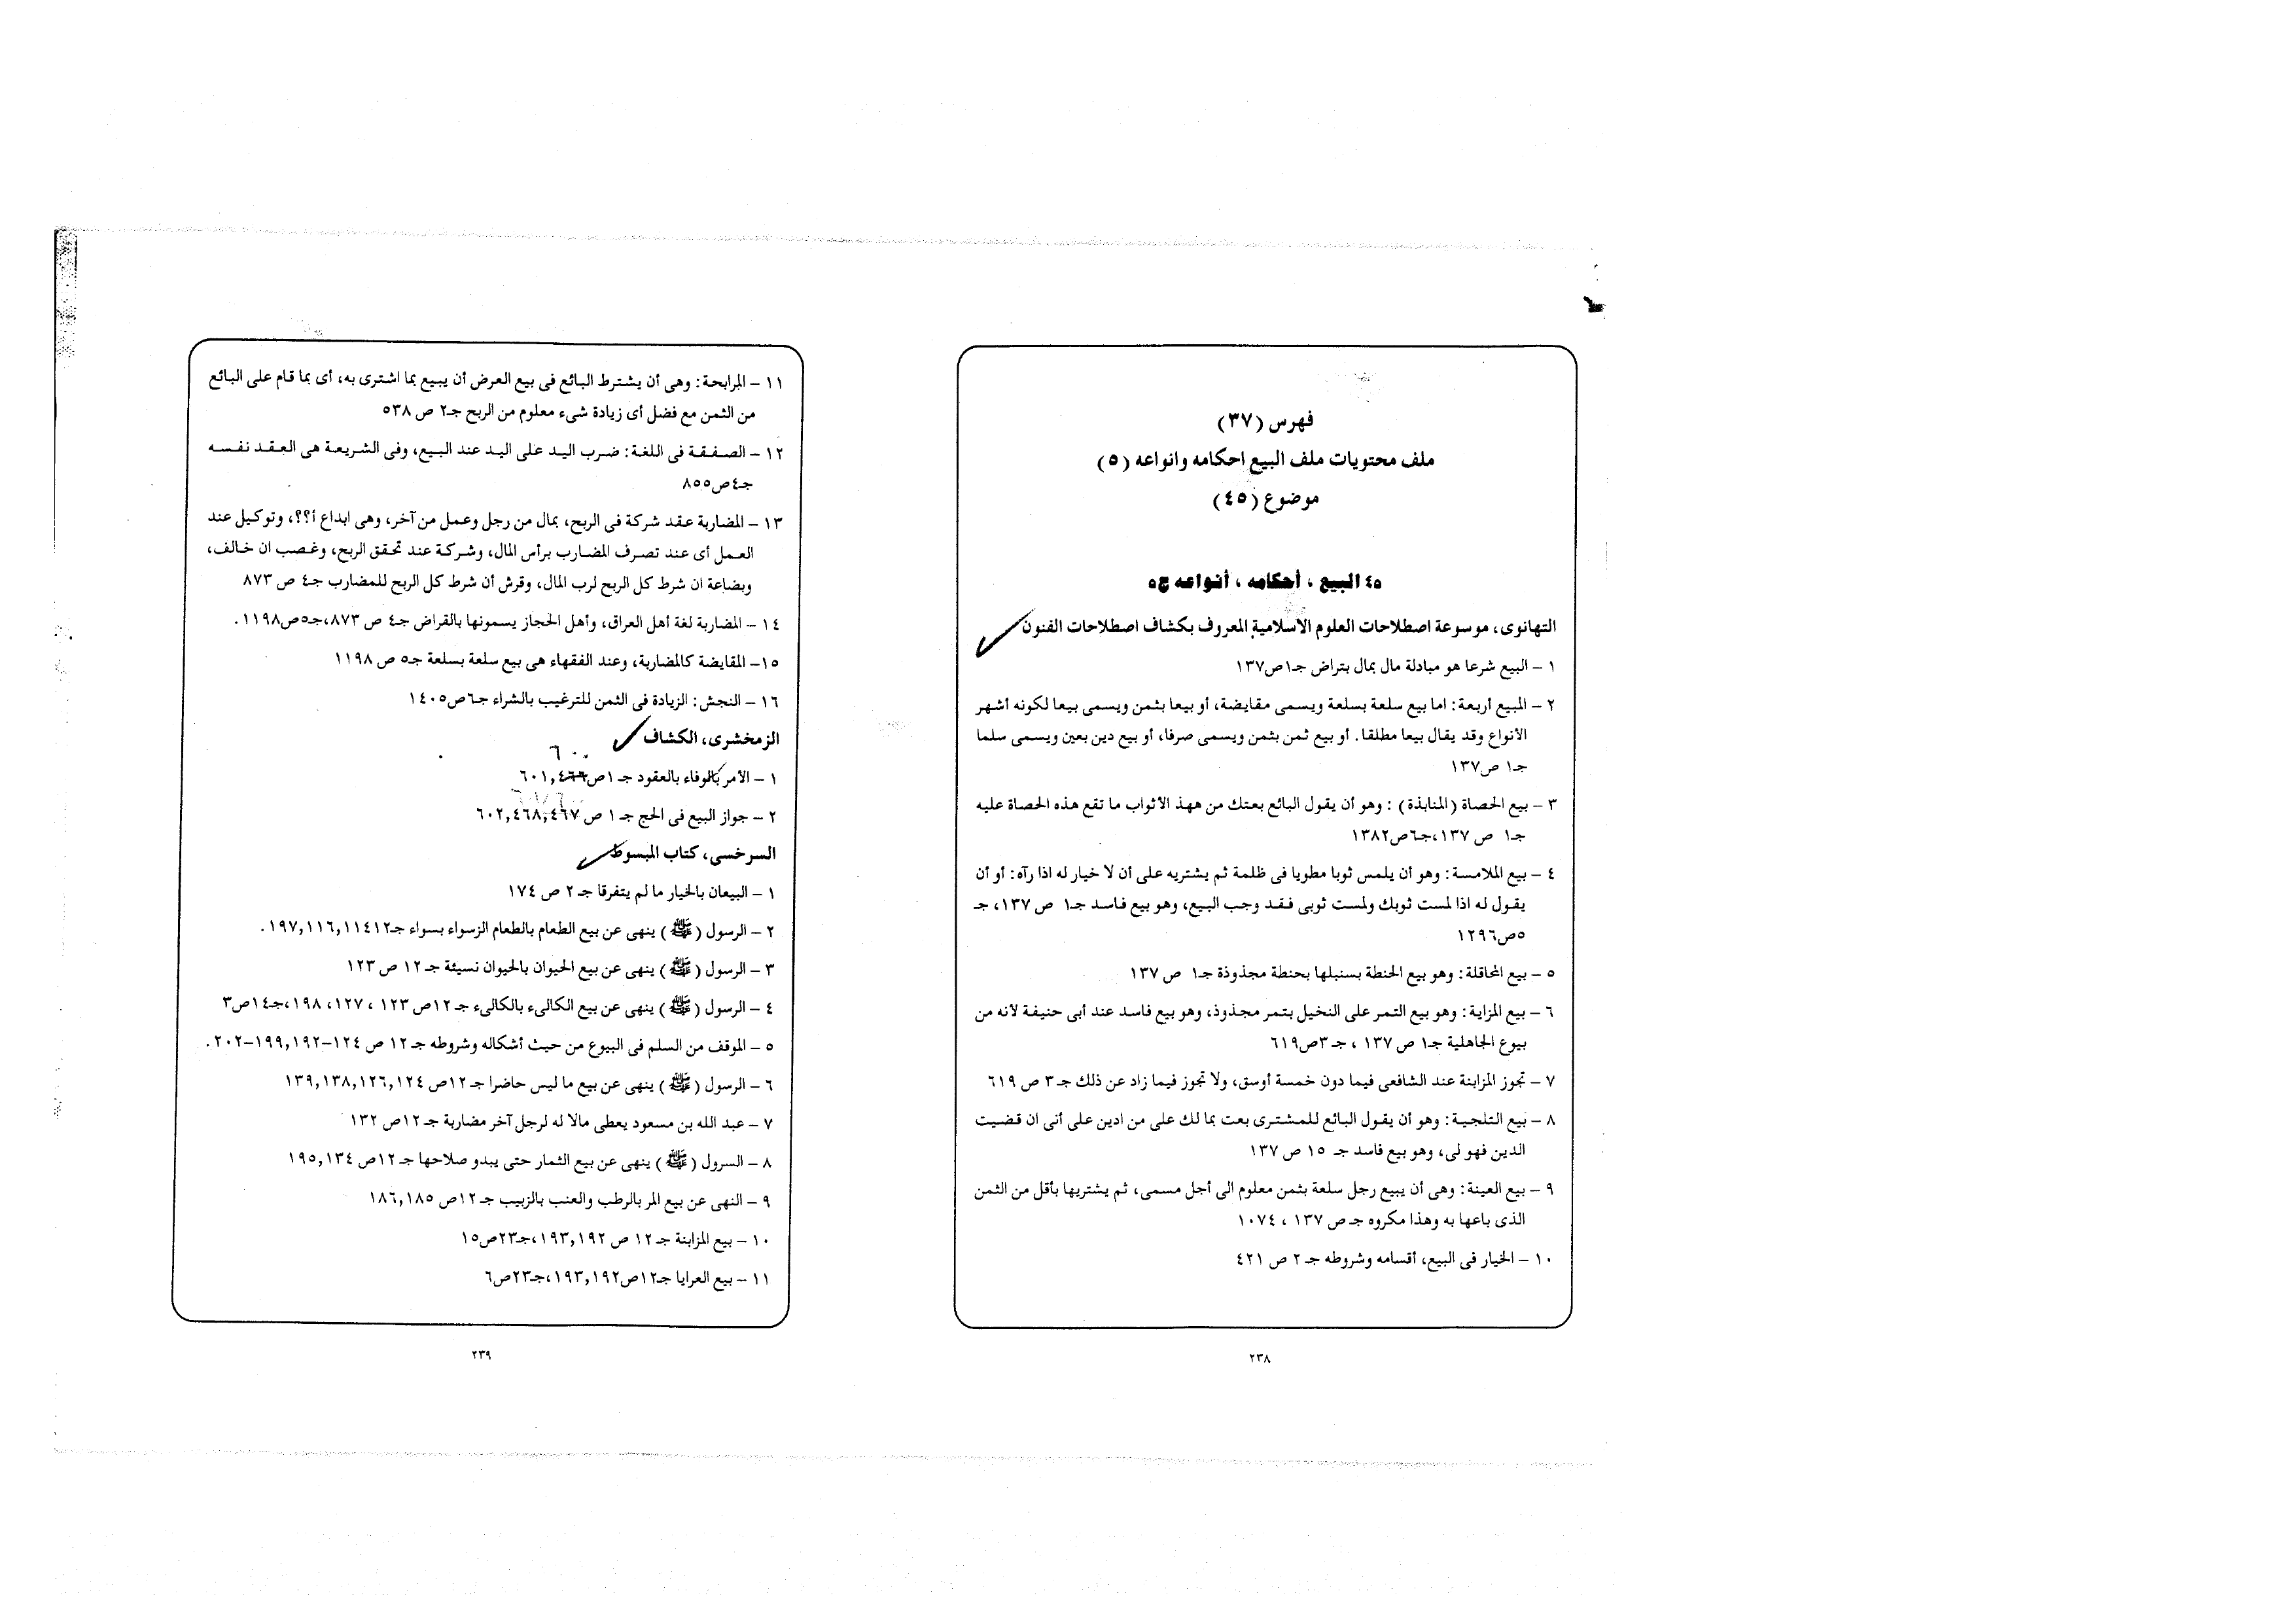 فهرس (٣٧)
ملف محتويات ملف البيع احكامه وانواعه (٥)
موضوع (٤٥)
٤٥ البيع ، أحكامه ، أنواعه ج٥
التهانوى، موسوعة اصطلاحات العلوم الاسلامية المعروف بكشاف اصطلاحات الفنون
١ – البيع شرعا هو مبادلة مال بمال بتراض جـ١ص١٣٧
٢ – المبيع أربعة: اما بيع سلعة بسلعة ويسمى مقايضة، أو بيعا بثمن ويسمى بيعا لكونه أشهر
الأنواع وقد يقال بيعا مطلقا. أو بيع ثمن بثمن ويسمى صرفا، أو بيع دين بعين ويسمى سلما
جـ١ ص١٣٧
٣ – بيع الحصاة (المنابذة) : وهو أن يقول البائع بعتك من ههذ الأثواب ما تقع هذه الحصاة عليه
جـ١ ص ١٣٧،جـ٦ص١٣٨٢
٤ – بيع الملامسة: وهو أن يلمس ثوبا مطويا فى ظلمة ثم يشتريه على أن لا خيار له اذا رآه: أو أن
يقول له اذا لمست ثوبك ولمست ثوبى فقد وجب البيع، وهو بيع فاسد جـ١ ص ١٣٧، جـ
٥ص١٢٩٦
٥ – بيع المحاقلة: وهو بيع الحنطة بسنبلها بحنطة مجذوذة جـ١ ص ١٣٧
٦ – بيع المزاية: وهو بيع التمر على النخيل بتمر مجذوذ، وهو بيع فاسد عند أبى حنيفة لأنه من
بيوع الجاهلية جـ١ ص ١٣٧ ، جـ٣ص٦١٩
٧ – تجوز المزابنة عند الشافعى فيما دون خمسة أوسق، ولا تجوز فيما زاد عن ذلك جـ٣ ص ٦١٩
٨ – بيع التلجية: وهو أن يقول البائع للمشترى بعت بما لك على من ادين على أنى ان قضيت
الدين فهو لى، وهو بيع فاسد جـ ١٥ ص ١٣٧
٩ – بيع العينة: وهى أن يبيع رجل سلعة بثمن معلوم الى أجل مسمى، ثم يشتريها بأقل من الثمن
الذى باعها به وهذا مكروه جـ ص ١٣٧ ، ١٠٧٤
١٠ – الخيار فى البيع، أقسامه وشروطه جـ ٢ ص ٤٢١
٢٣٨
١١ – المرابحة: وهى أن يشترط البائع فى بيع العرض أن يبيع بما اشترى به، أى بما قام على البائع
من الثمن مع فضل أى زيادة شىء معلوم من الربح جـ٢ ص ٥٣٨
١٢ – الصفقة فى اللغة: ضرب اليد على اليد عند البيع، وفى الشريعة هى العقد نفسه
جـ٤ص٨٥٥
١٣ – المضاربة عقد شركة فى الربح، بمال من رجل وعمل من آخر، وهى ابداع أ؟؟، وتوكيل عند
العمل أى عند تصرف المضارب برأس المال، وشركة عند تحقق الربح، وغصب ان خالف،
وبضاعة ان شرط كل الربح لرب المال، وقرش أن شرط كل الربح للمضارب جـ٤ ص ٨٧٣
١٤ – المضاربة لغة أهل العراق، وأهل الحجاز يسمونها بالقراض جـ٤ ص ٨٧٣،جـ٥ص١١٩٨.
١٥– المقايضة كالمضاربة، وعند الفقهاء هى بيع سلعة بسلعة جـ٥ ص ١١٩٨
١٦ – النجش: الزيادة فى الثمن للترغيب بالشراء جـ٦ص١٤٠٥
الزمخشرى، الكشاف
١ – الأمر بالوفاء بالعقود جـ١ص٦٠١,٤٦٦
٢ – جواز البيع فى الحج جـ١ ص ٦٠٢,٤٦٨,٤٦٧
السرخسى، كتاب المبسوط
١ – البيعان بالخيار ما لم يتفرقا جـ ٢ ص ١٧٤
٢ – الرسول (ﷺ) ينهى عن بيع الطعام بالطعام الزسواء بسواء جـ١٩٧,١١٦,١١٤١٢.
٣ – الرسول (ﷺ) ينهى عن بيع الحيوان بالحيوان نسيئة جـ١٢ ص ١٢٣
٤ – الرسول (ﷺ) ينهى عن بيع الكالىء بالكالىء جـ١٢ص ١٢٣ ، ١٢٧، ١٩٨،جـ١٤ص٣
٥ – الموقف من السلم فى البيوع من حيث أشكاله وشروطه جـ١٢ ص ١٢٤–١٩٩,١٩٢–٢٠٢.
٦ – الرسول (ﷺ) ينهى عن بيع ما ليس حاضرا جـ١٢ص ١٣٩,١٣٨,١٢٦,١٢٤
٧ – عبد الله بن مسعود يعطى مالا له لرجل آخر مضاربة جـ١٢ص ١٣٢
٨ – السرول (ﷺ) ينهى عن بيع الثمار حتى يبدو صلاحها جـ١٢ص ١٩٥,١٣٤
٩ – النهى عن بيع المر بالرطب والعنب بالزبيب جـ١٢ص ١٨٦,١٨٥
١٠ – بيع المزابنة جـ١٢ ص ١٩٣,١٩٢،جـ٢٣ص١٥
١١ – بيع العرايا جـ١٢ص١٩٣,١٩٢،جـ٢٣ص٦
٢٣٩